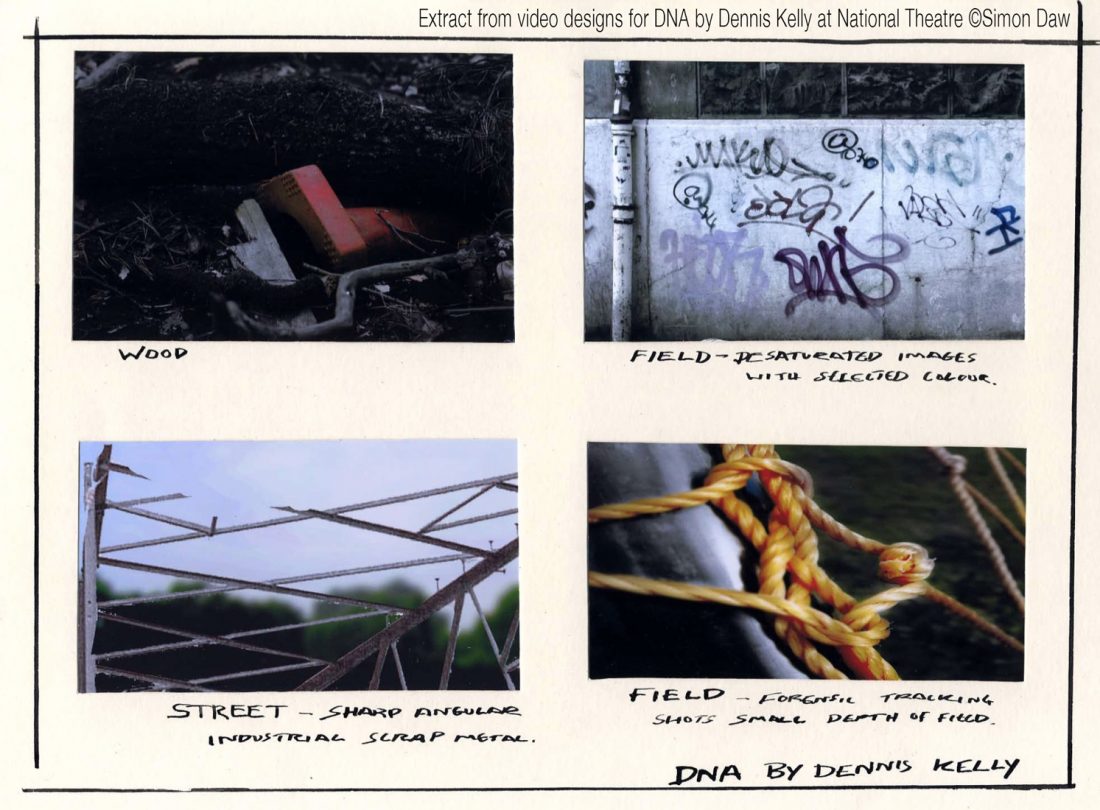 Extract from video designs for DNA by Dennis Kelly at National Theatre ©Simon Daw
WOOD
FIELD – DESATURATED IMAGES
WITH SELECTED COLOUR.
STREET – SHARP ANGULAR
INDUSTRIAL SCRAP METAL.
FIELD – FORENSIC TRACKING
SHOTS SMALL DEPTH OF FIELD.
DNA BY DENNIS KELLY